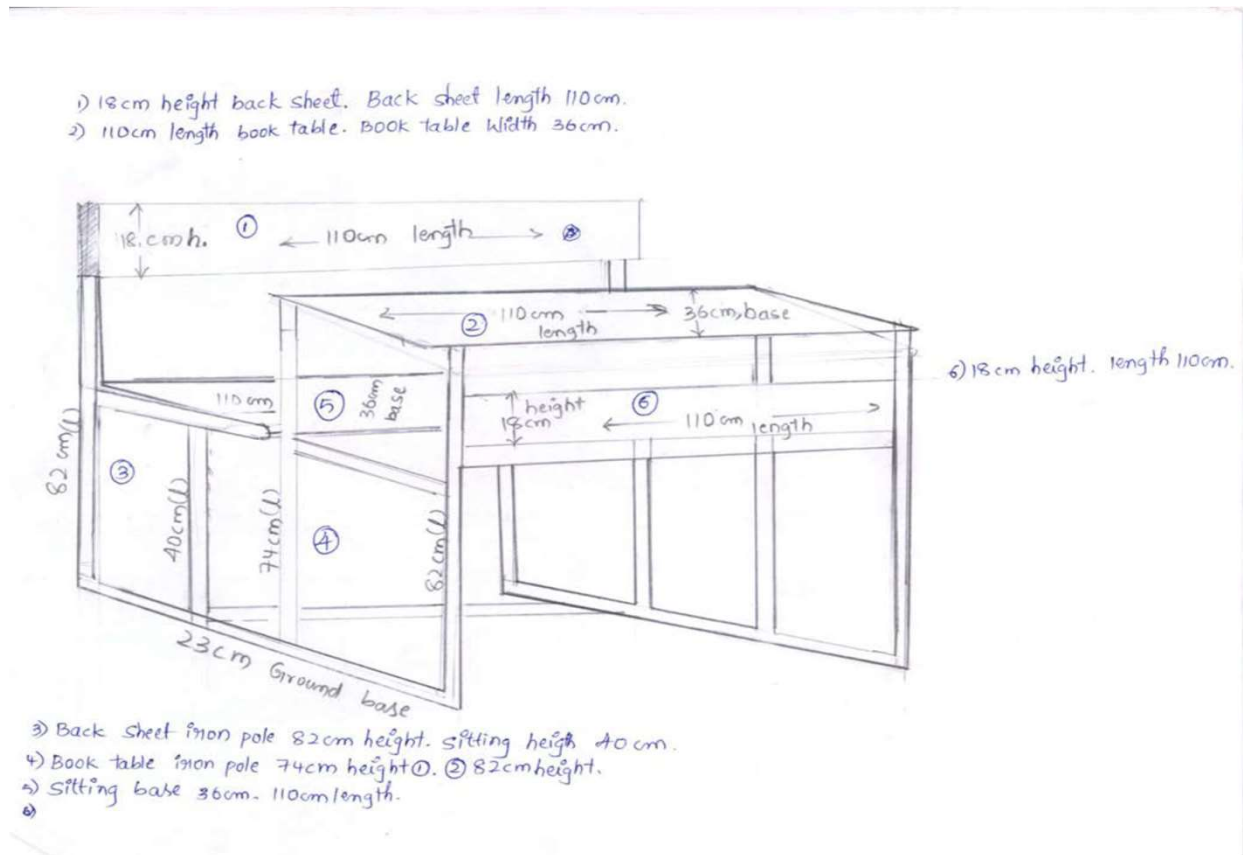 1) 18cm height back sheet. Back sheet length 110cm.
2) 110cm length book table. BOOK table Width 36cm.
18.cm h. ① 110cm length
② 110cm length
36cm,base
6) 18cm height. length 110cm.
110cm ⑤ 36cm base
height 18cm ⑥ 110cm length
82cm(l)
③
40cm(l)
74cm(l)
④
82cm(l)
23cm Ground base
3) Back Sheet iron pole 82cm height. sitting heigh 40cm.
4) Book table iron pole 74cm height①. ② 82cmheight.
5) Sitting base 36cm- 110cm length.
6)